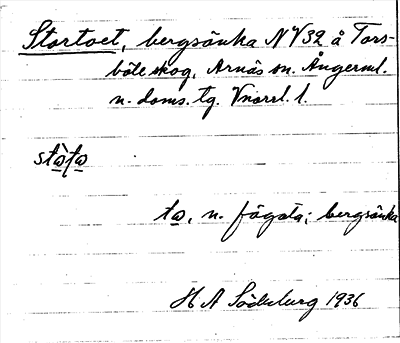 Stortoet, bergsänka NV32 å Tors-
böle skog, Arnäs sn. Ångerml.
n. doms. tg. Vnorrl. l.
stò̱ta̱
ta̱, n. fägata; bergsänka
H A Söderberg 1936